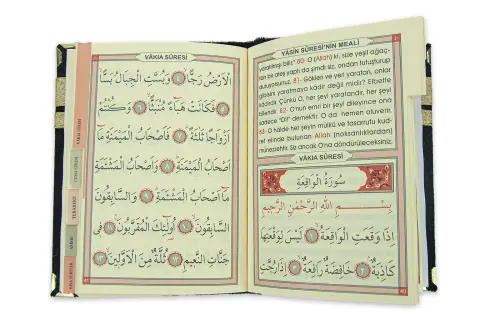 YÂSİN SÛRESİ'NİN MEALİ
yaratmayı bilir." 80- O (Allah) ki, size yeşil ağaç-
tan bir ateş yaptı da şimdi siz, ondan tutuşturup
duruyorsunuz. 81- Gökleri ve yeri yaratan, onlar
gibisini yaratmaya kâdir değil midir? Elbette
kâdirdir. Çünkü O, her şeyi yaratandır, her şeyi
bilendir. 82- O'nun emri bir şeyi dileyince ona
sadece "Ol!" demektir. O da hemen oluverir.
83- O halde her şeyin mülkü ve tasarrufu kud-
ret elinde bulunan Allah (noksanlıklardan)
münezzehtir. Siz ancak O'na döndürüleceksiniz.
VÂKIA SÛRESİ
سُورَةُ الْوَاقِعَةِ
بِسْمِ اللّٰهِ الرَّحْمٰنِ الرَّحِيمِ
اِذَا وَقَعَتِ الْوَاقِعَةُ ﴿١﴾ لَيْسَ لِوَقْعَتِهَا
كَاذِبَةٌ ﴿٢﴾ خَافِضَةٌ رَافِعَةٌ ﴿٣﴾ اِذَا رُجَّتِ
VÂKIA SÛRESİ
الْاَرْضُ رَجًّا ﴿٤﴾ وَبُسَّتِ الْجِبَالُ بَسًّا
﴿٥﴾ فَكَانَتْ هَبَاءً مُنْبَثًّا ﴿٦﴾ وَكُنْتُمْ
اَزْوَاجًا ثَلٰثَةً ﴿٧﴾ فَاَصْحَابُ الْمَيْمَنَةِ مَا
اَصْحَابُ الْمَيْمَنَةِ ﴿٨﴾ وَاَصْحَابُ الْمَشْئَمَةِ
مَا اَصْحَابُ الْمَشْئَمَةِ ﴿٩﴾ وَالسَّابِقُونَ
السَّابِقُونَ ﴿١٠﴾ اُولٰئِكَ الْمُقَرَّبُونَ ﴿١١﴾ فِى
جَنَّاتِ النَّعِيمِ ﴿١٢﴾ ثُلَّةٌ مِنَ الْاَوَّلِينَ ﴿١٣﴾